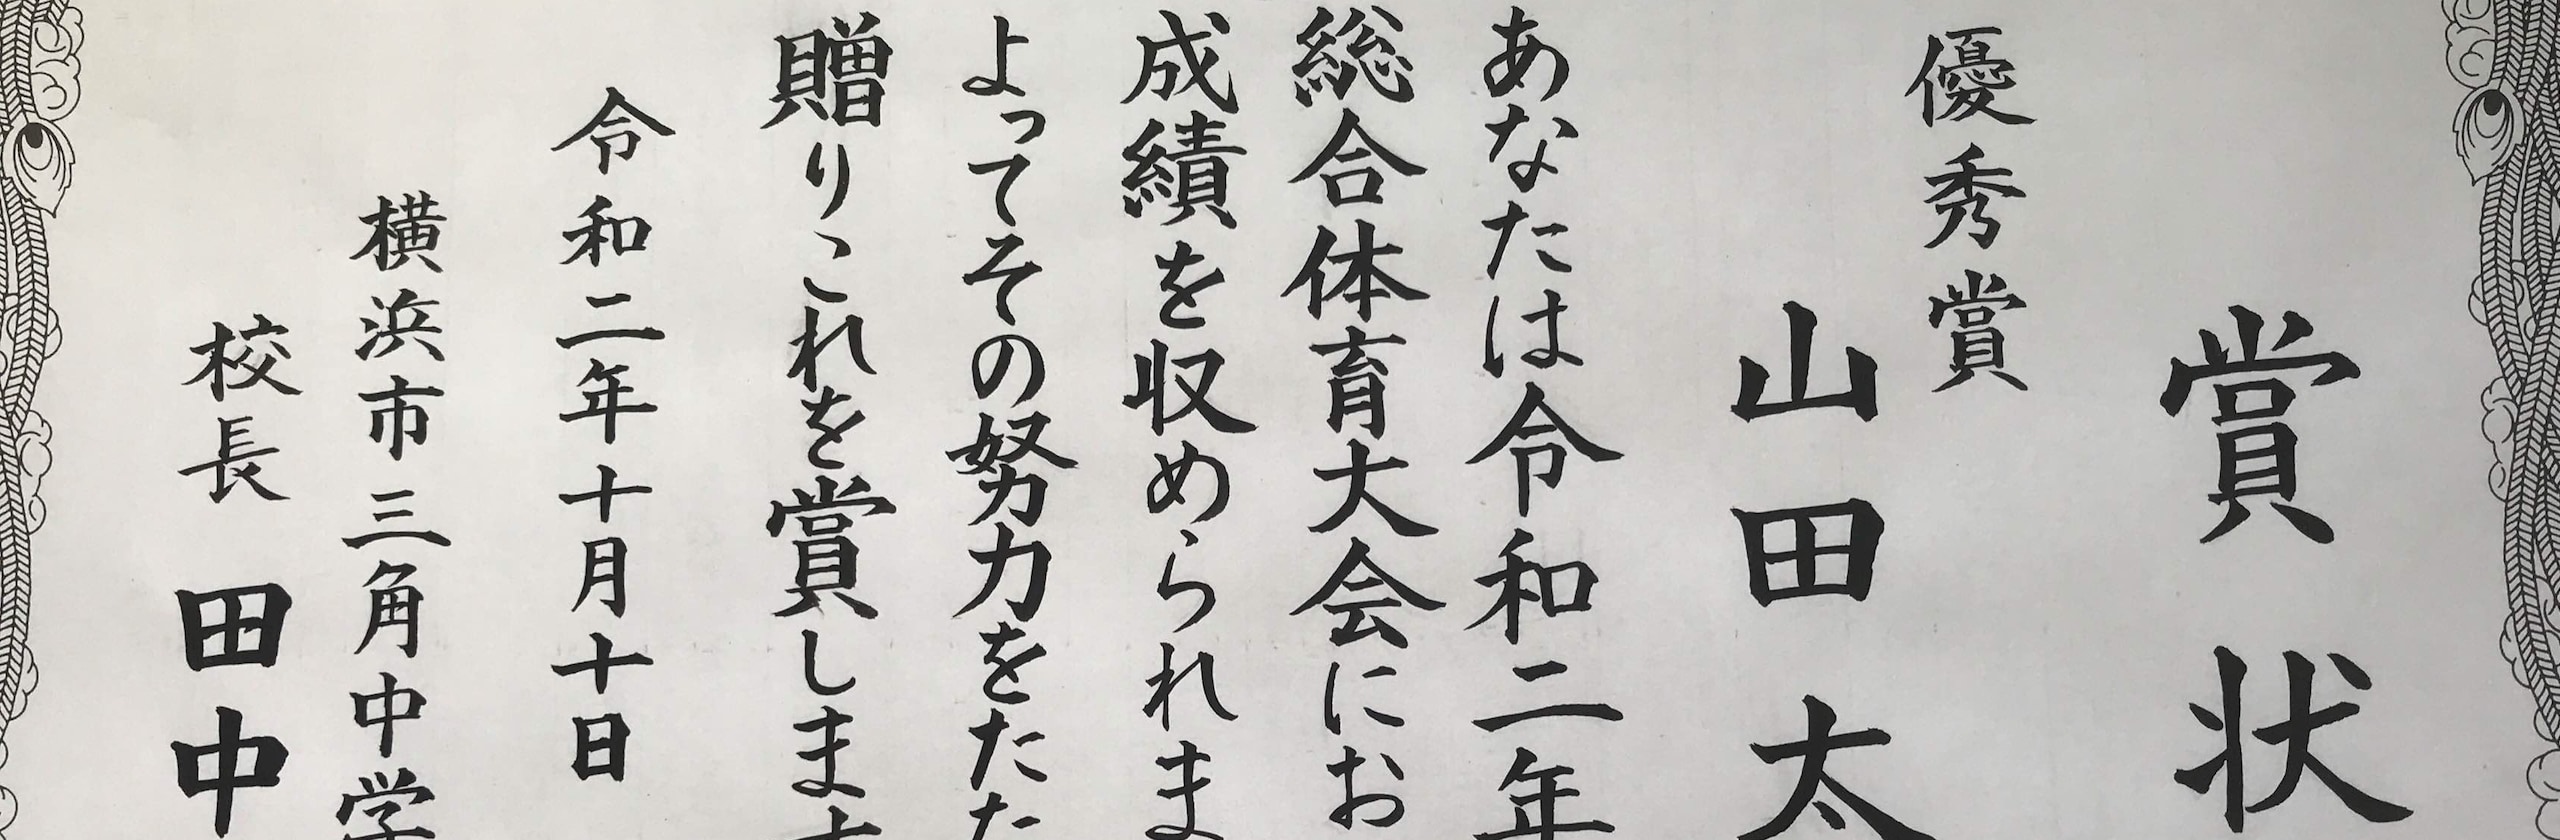 賞状
優秀賞
山田太
あなたは令和二年
総合体育大会にお
成績を収められま
よってその努力をたた
贈りこれを賞します
令和二年十月十日
横浜市三角中学
校長 田中